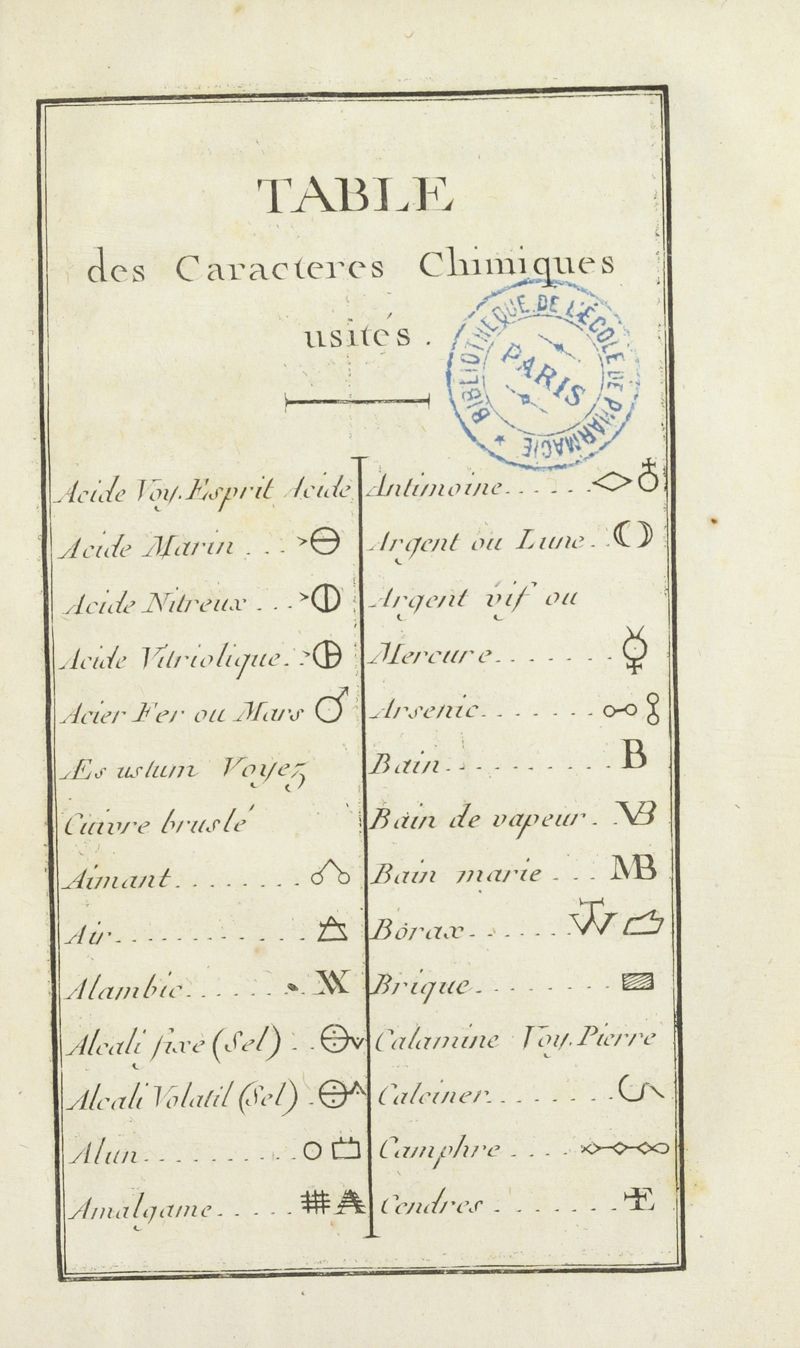 TABLE
des Caracteres Chimiques
usités.
BIBLIOTHEQUE DE L'ÉCOLE DE PHARMACIE
PARIS
Acide Voy. Esprit Acide
Acide Marin
Acide Nitreux
Acide Vitriolique
Acier Fer ou Mars ♂
Æs ustum Voyez
Cuivre bruslé
Aimant
Air
Alambic
Alcali fixe (Sel)
Alcali Volatil (Sel)
Alun
Amalgame
Antimoine
Argent ou Lune
Argent vif ou
Mercure ☿
Arsenic
Bain B
Bain de vapeur VB
Bain marie MB
Bôrax
Brique
Calamine Voy. Pierre
Calciner
Camphre
Cendres